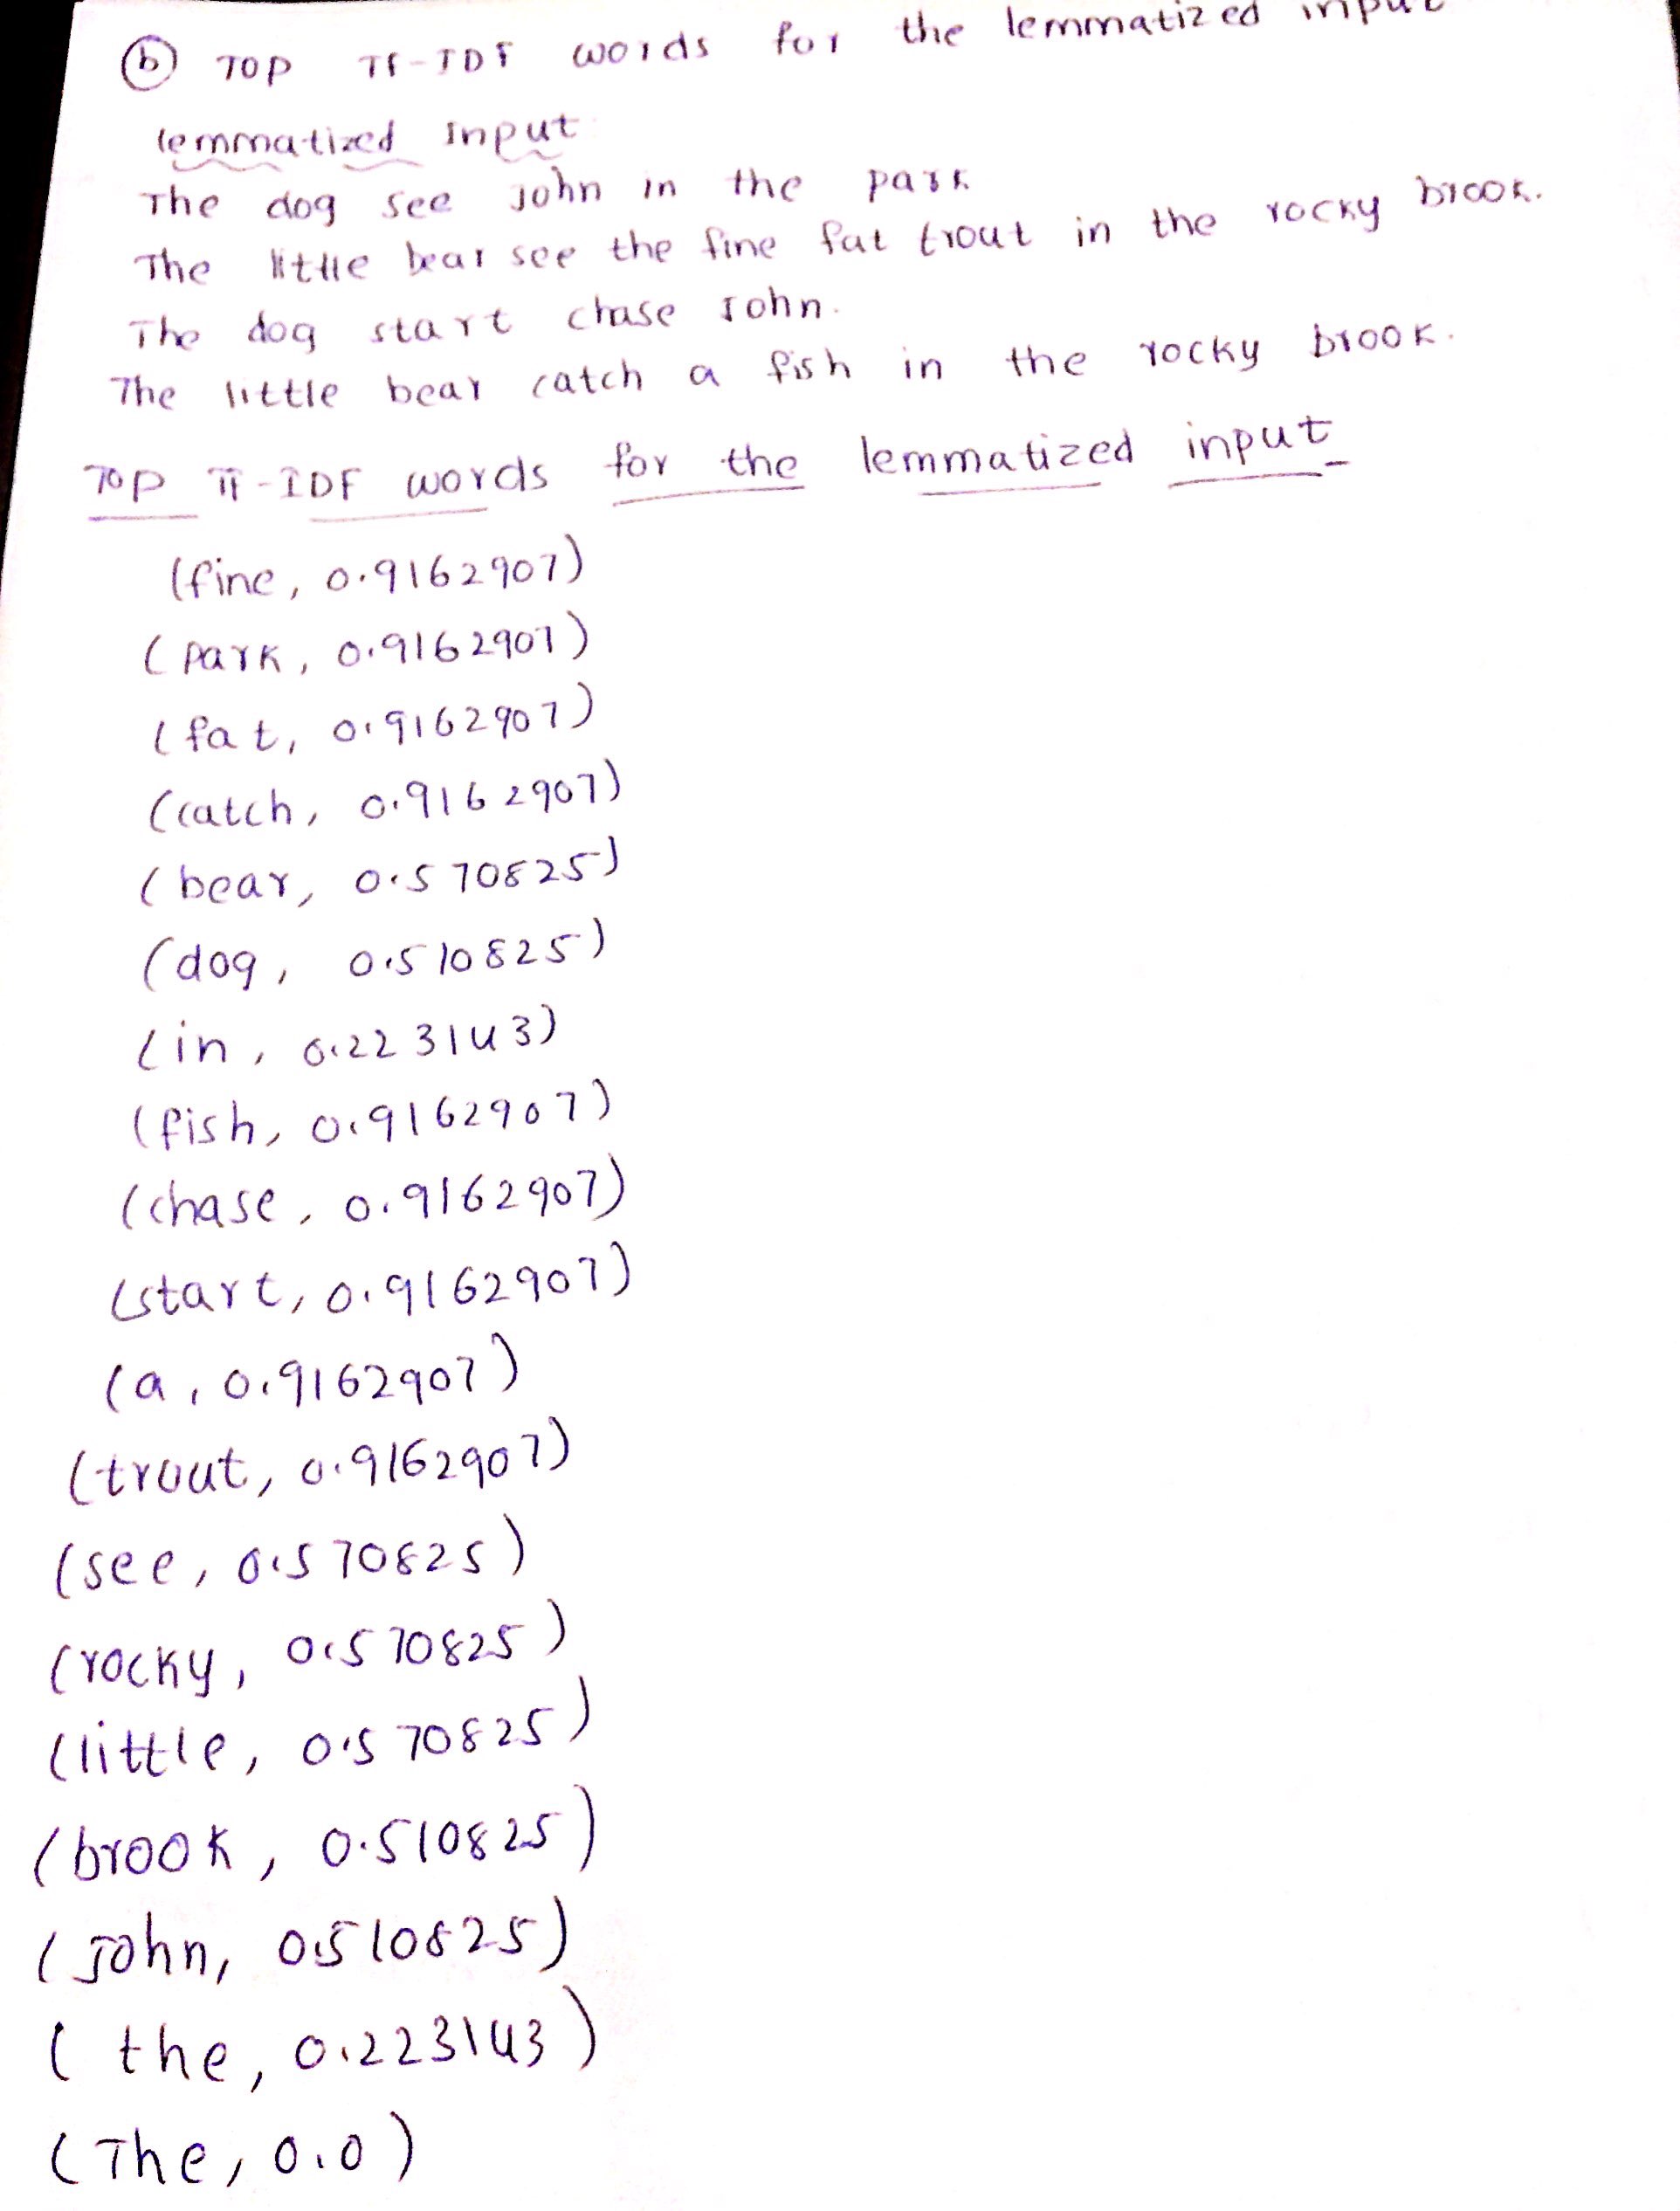 (b) TOP TF-IDF words for the lemmatized input
lemmatized input
The dog see John in the park
The little bear see the fine fat trout in the rocky brook.
The dog start chase John.
The little bear catch a fish in the rocky brook.
Top TF-IDF words for the lemmatized input
(fine, 0.9162907)
(park, 0.9162907)
(fat, 0.9162907)
(catch, 0.9162907)
(bear, 0.570825)
(dog, 0.510825)
(in, 0.223143)
(fish, 0.9162907)
(chase, 0.9162907)
(start, 0.9162907)
(a, 0.9162907)
(trout, 0.9162907)
(see, 0.570825)
(rocky, 0.570825)
(little, 0.570825)
(brook, 0.510825)
(John, 0.510825)
(the, 0.223143)
(The, 0.0)